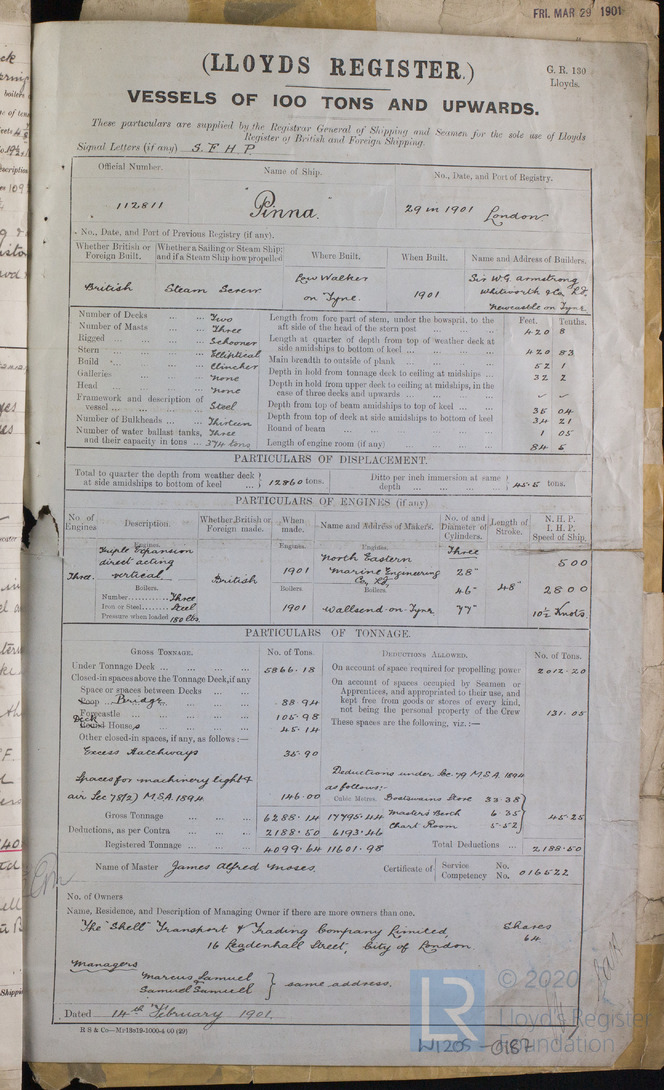 FRI. MAR 29 1901
(LLOYDS REGISTER.)
G. R. 130
Lloyds.
VESSELS OF 100 TONS AND UPWARDS.
These particulars are supplied by the Registrar General of Shipping and Seamen for the sole use of Lloyds
Register of British and Foreign Shipping.
Signal Letters (if any) S. F. H. P.
Official Number. Name of Ship. No., Date, and Port of Registry.
112811 "Pinna." 29 in 1901 London
No., Date, and Port of Previous Registry (if any).
Whether British or Foreign Built. Whether a Sailing or Steam Ship; and if a Steam Ship how propelled Where Built. When Built. Name and Address of Builders.
British Steam Screw Low Walker on Tyne. 1901 Sir W G Armstrong Whitworth & Co. Ld. Newcastle on Tyne
Number of Decks ... Two
Number of Masts ... Three
Rigged ... Schooner
Stern ... Elliptical
Build ... Clincher
Galleries ... None
Head ... None
Framework and description of vessel ... Steel
Number of Bulkheads ... Thirteen
Number of water ballast tanks, and their capacity in tons ... Three 374 tons
Feet. Tenths.
Length from fore part of stem, under the bowsprit, to the aft side of the head of the stern post ... 420 8
Length at quarter of depth from top of weather deck at side amidships to bottom of keel ... 420 83
Main breadth to outside of plank ... 52 1
Depth in hold from tonnage deck to ceiling at midships ... 32 2
Depth in hold from upper deck to ceiling at midships, in the case of three decks and upwards ...
Depth from top of beam amidships to top of keel ... 35 04
Depth from top of deck at side amidships to bottom of keel 34 21
Round of beam ... 1 05
Length of engine room (if any) 84 5
PARTICULARS OF DISPLACEMENT.
Total to quarter the depth from weather deck at side amidships to bottom of keel ... 12860 tons. Ditto per inch immersion at same depth ... 45.5 tons.
PARTICULARS OF ENGINES (if any)
No. of Engines Description. Whether British or Foreign made. When made. Name and Address of Makers. No. of and Diameter of Cylinders. Length of Stroke. N. H. P. I. H. P. Speed of Ship.
Engines. Engines. Engines.
Three. Triple Expansion direct acting vertical British 1901 North Eastern Marine Engineering Co. Ld. Three 28" 46" 77" 48" 500 2800 10½ Knots
Boilers. Boilers. Boilers.
Number ... Three
Iron or Steel ... Steel
Pressure when loaded 180 lbs.
1901 Wallsend-on-Tyne
PARTICULARS OF TONNAGE.
GROSS TONNAGE. No. of Tons. DEDUCTIONS ALLOWED. No. of Tons.
Under Tonnage Deck ... 5866.18
Closed-in spaces above the Tonnage Deck, if any
Space or spaces between Decks ...
Poop Bridge ... 88.94
Forecastle ... 105.98
Round Deck Houses ... 45.14
Other closed-in spaces, if any, as follows:—
Excess Hatchways 35.90
Spaces for machinery light & air Sec 78(2) M.S.A. 1894 146.00
Gross Tonnage ... 6288.14 17795.44
Deductions, as per Contra ... 2188.50 6193.46
Registered Tonnage ... 4099.64 11601.98
Cubic Metres.
On account of space required for propelling power 2012.20
On account of spaces occupied by Seamen or Apprentices, and appropriated to their use, and kept free from goods or stores of every kind, not being the personal property of the Crew 131.05
These spaces are the following, viz.:—
Deductions under Sec. 79 M.S.A. 1894 as follows:-
Boatswains Store 33.38
Master's Berth 6.35
Chart Room 5.52
45.25
Total Deductions ... 2188.50
Name of Master James Alfred Moses. Certificate of Service No. Competency No. 016522
No. of Owners
Name, Residence, and Description of Managing Owner if there are more owners than one.
The "Shell" Transport & Trading Company Limited, Shares
16 Leadenhall Street, City of London 64
Managers
Marcus Samuel
Samuel Samuel } same address.
Dated 14th February 1901.
R S & Co—
W1205-0187
LR
© 2020
Lloyd's Register
Foundation